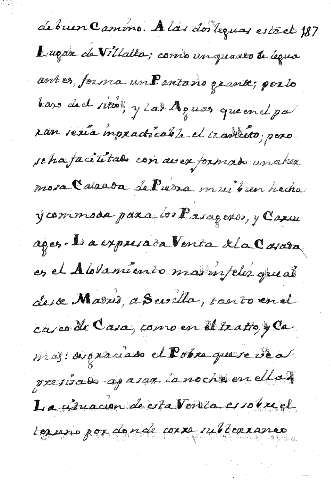 de buen Camino. A las dos leguas está el 187
Lugar de Villalta; como un quarto de legua
antes, forma un Pantano grande; por lo
baxo del sitio; y las Aguas que en el pa
ran seria impracticable el transito, pero
se ha facilitado con aver formado una her
mosa Calzada de Piedra mui bien hecha
y commoda para los Pasageros, y Carru
ages. La expresada Venta de la Casada
es el Aloxamiento mas infeliz que ai
desde Madrid, a Sevilla, tanto en el
casco de Casa, como en el trato, y Ca
mas: desgraciado el Pobre que se vea
precisado a pasar la noche en ella
La situacion de esta Venta es sobre el
terreno por donde corre subterraneo